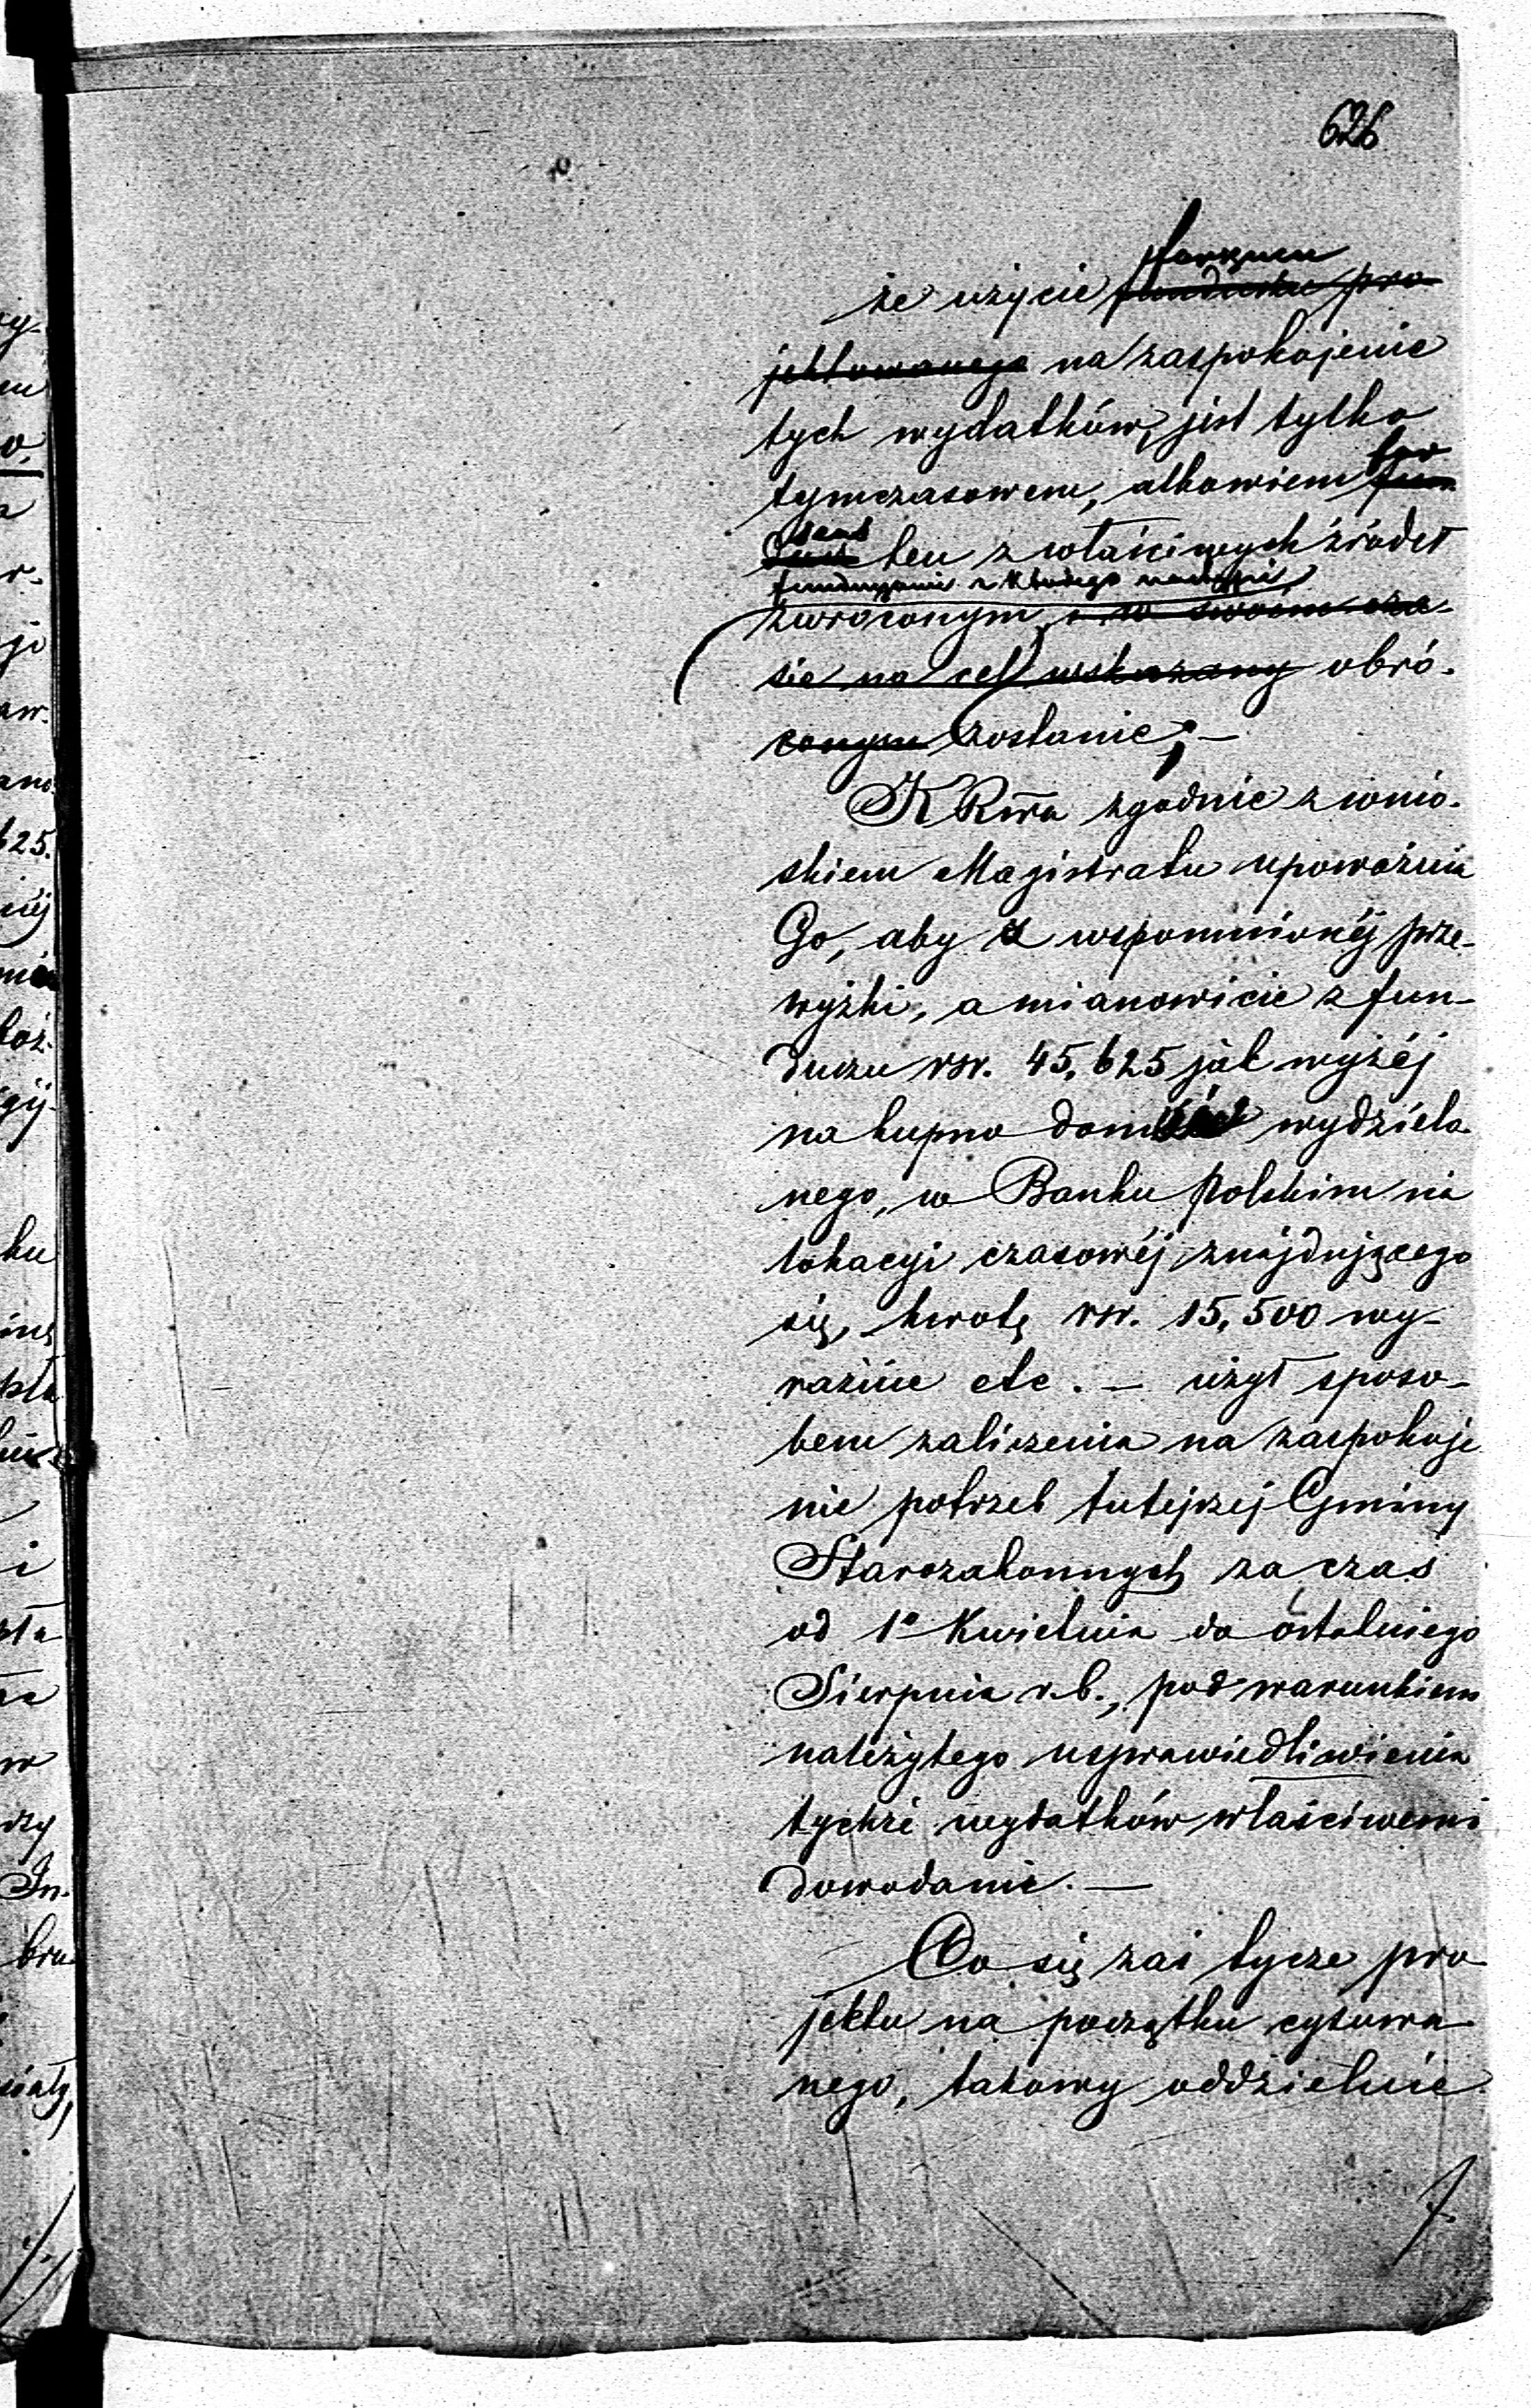 626
że użycie funduszu pro
jektowanego na zaspokojenie
tych wydatków, jest tylko
tymczasowem, albowiem fun
dusz ten z właściwych źródeł
funduszowi z którego nastąpi
zwróconym, a w swoim cza-
sie na cel wskazany obró-
conym zostanie; —
KRwa zgodnie z wnio-
skiem Magistratu upoważnia
Go, aby z wspomnionéj prze-
wyżki, a mianowicie z fun-
duszu rsr. 45,625 jak wyżéj
na kupno domów wydziela-
nego, w Banku Polskim na
lokacyi czasowéj znajdującego
się, kwotę rsr. 15,500 wy-
raźnie etc. — użył sposo-
bem zaliczenia na zaspokoje
nie potrzeb tutejszej Gminy
Starozakonnych za czas
od 1o Kwietnia do ostatniego
Sierpnia r.b., pod warunkiem
należytego usprawiedliwienia
tychże wydatków właściwemi
dowodami. —
Co się zaś tycze pro
jektu na początku cytowa-
nego, takowy oddzielnie